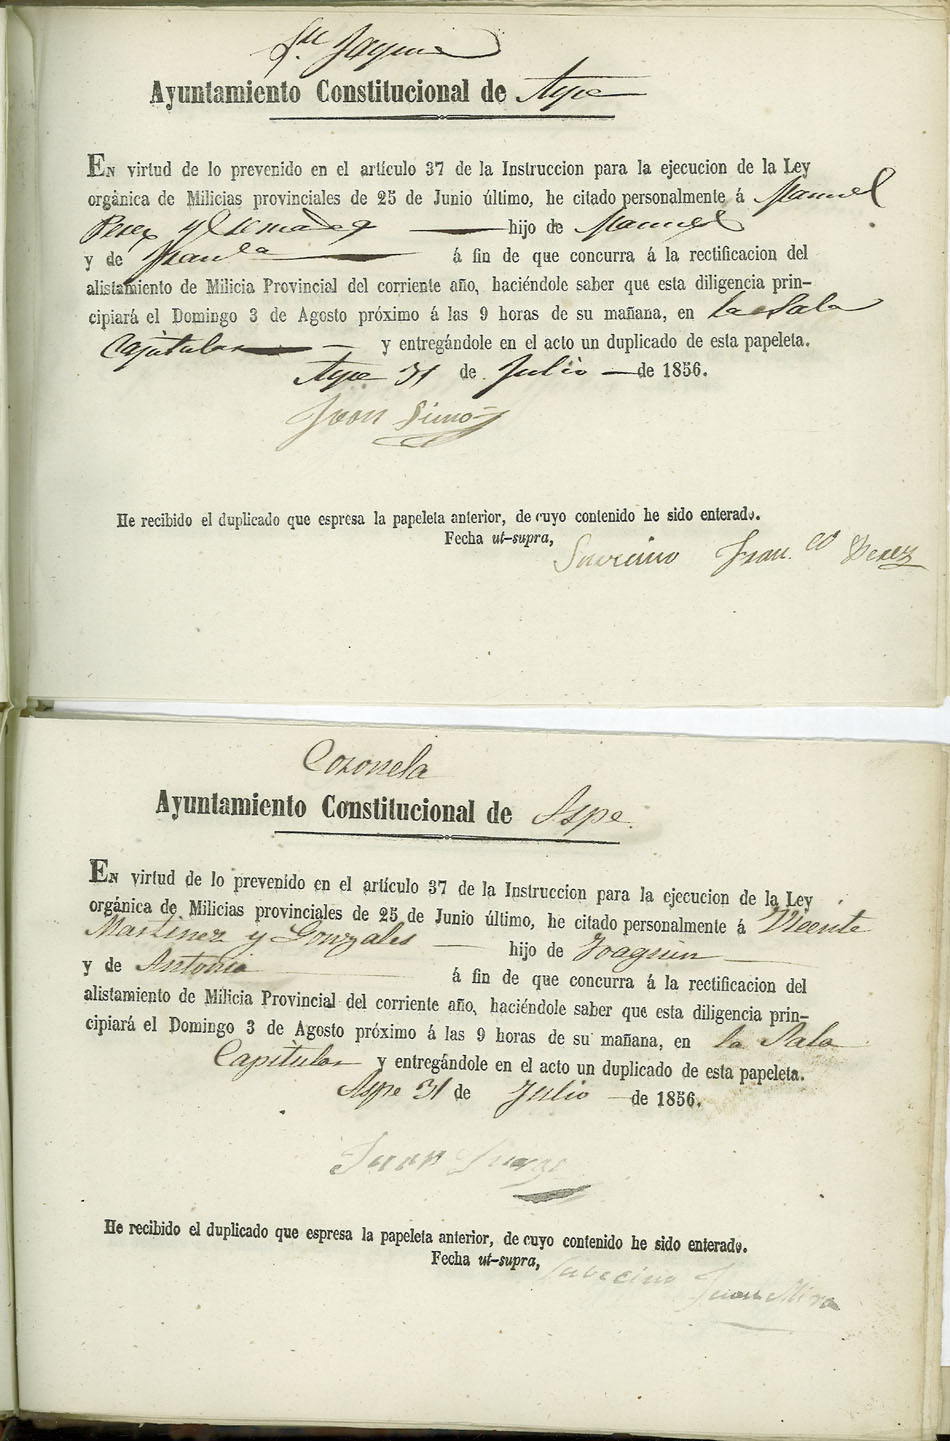 Jayme
Ayuntamiento Constitucional de Aspe
EN virtud de lo prevenido en el artículo 37 de la Instruccion para la ejecucion de la Ley
orgánica de Milicias provinciales de 25 de Junio último, he citado personalmente á Manuel
Perez y hijo de Manuel
y de á fin de que concurra á la rectificacion del
alistamiento de Milicia Provincial del corriente año, haciéndole saber que esta diligencia prin-
cipiará el Domingo 3 de Agosto próximo á las 9 horas de su mañana, en la Sala
Capitular y entregándole en el acto un duplicado de esta papeleta.
Aspe 31 de Julio de 1856.
Juan Simo
He recibido el duplicado que espresa la papeleta anterior, de cuyo contenido he sido enterado.
Fecha ut-supra,
Suvecino Fran.co Perez
Coronela
Ayuntamiento Constitucional de Aspe.
EN virtud de lo prevenido en el artículo 37 de la Instruccion para la ejecucion de la Ley
orgánica de Milicias provinciales de 25 de Junio último, he citado personalmente á Vicente
Martinez y Gonzales hijo de Joaquin
y de Antonia á fin de que concurra á la rectificacion del
alistamiento de Milicia Provincial del corriente año, haciéndole saber que esta diligencia prin-
cipiará el Domingo 3 de Agosto próximo á las 9 horas de su mañana, en la Sala
Capitular y entregándole en el acto un duplicado de esta papeleta.
Aspe 31 de Julio de 1856.
Juan
He recibido el duplicado que espresa la papeleta anterior, de cuyo contenido he sido enterado.
Fecha ut-supra,
Suvecino Juan Mira